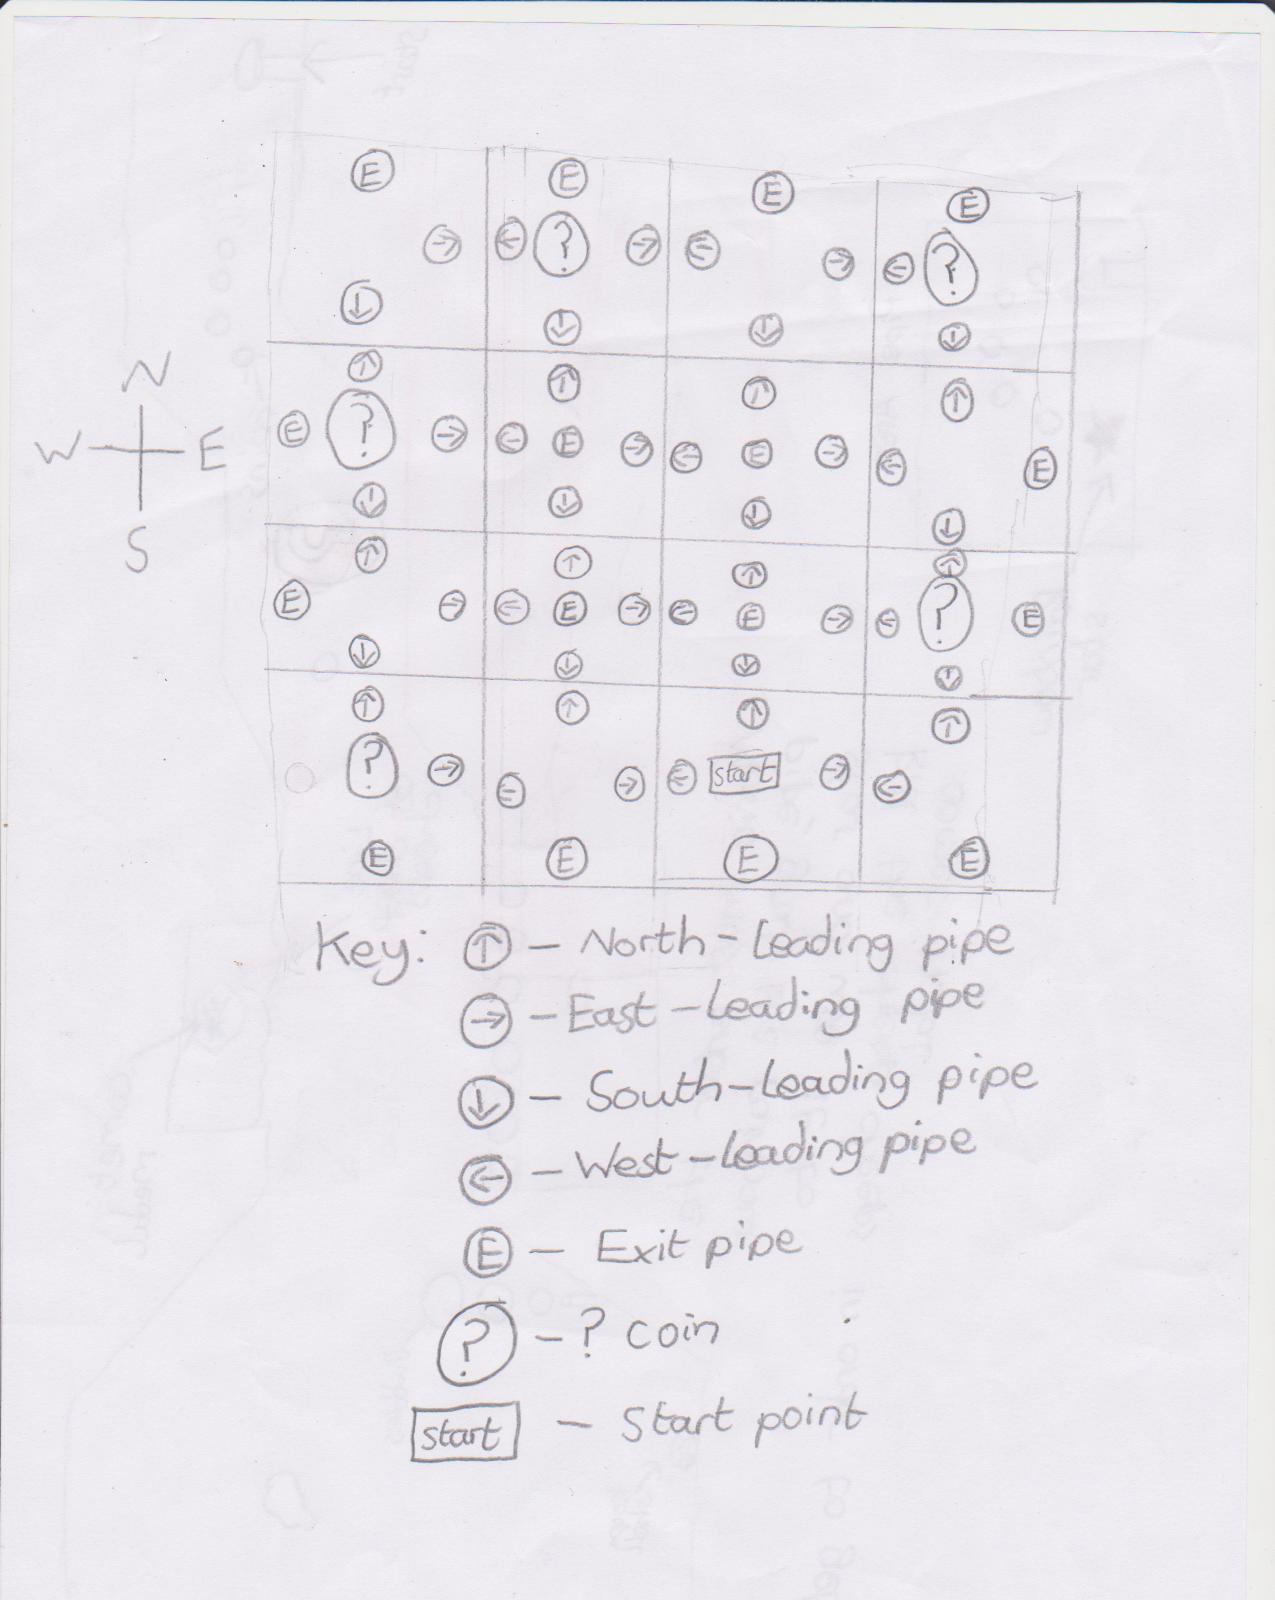 E E E E
→ ← ? → ← → ← ?
↓ ↓ ↓ ↓
↑ ↑ ↑ ↑
E ? → ← E → ← E → ← E
↓ ↓ ↓ ↓
↑ ↑ ↑ ↑
E → ← E → ← E → ← ? E
↓ ↓ ↓ ↓
↑ ↑ ↑ ↑
? → ← → ← start → ←
E E E E
N
W E
S
Key: ↑ - North-leading pipe
→ - East-leading pipe
↓ - South-leading pipe
← - West-leading pipe
E - Exit pipe
? - ? coin
start - Start point